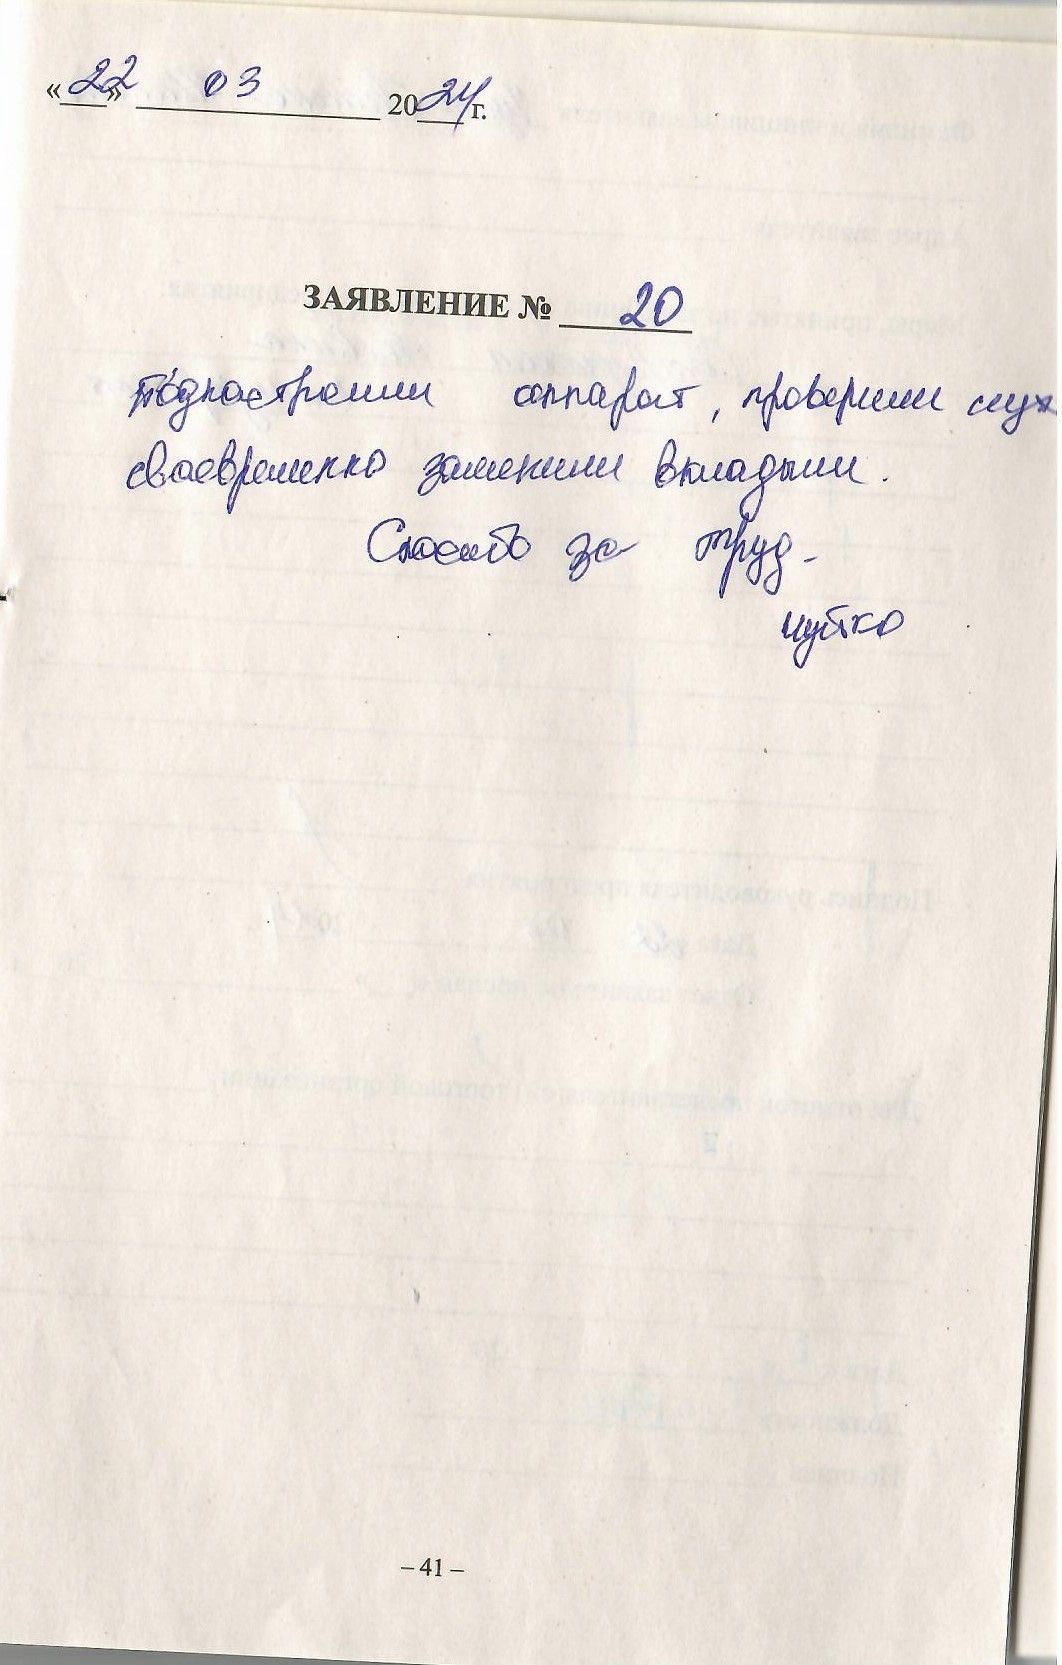 «22» 03 2024 г.
ЗАЯВЛЕНИЕ № 20
Поднастроили аппарат, проверили слух
своевременно заменили вкладыши.
Спасибо за труд -
– 41 –